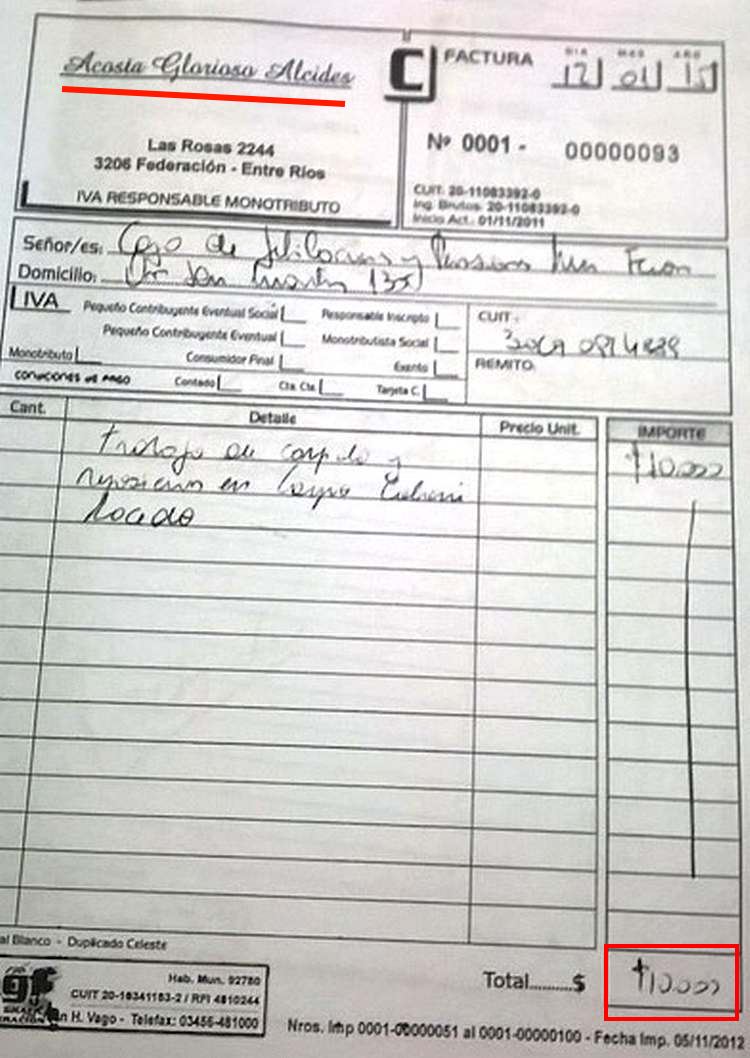 Acosta Glorioso Alcides
Las Rosas 2244
3206 Federación - Entre Ríos
IVA RESPONSABLE MONOTRIBUTO
C
FACTURA
DIA MES AÑO
12 01 15
Nº 0001 - 00000093
CUIT: 20-11083392-0
Ing. Brutos: 20-11083392-0
Inicio Act.: 01/11/2011
Señor/es: Caja de Jubilaciones y Pensiones
Domicilio: San Martín
IVA
Pequeño Contribuyente Eventual Social
Responsable Inscripto
Pequeño Contribuyente Eventual
Monotributista Social
Monotributo
Consumidor Final
Exento
CONDICIONES DE PAGO
Contado
Cta. Cte.
Tarjeta C.
CUIT:
REMITO:
Cant. Detalle Precio Unit. IMPORTE
trabajo de y $10.000
reposicion en
Total..........$ $10.000
al Blanco - Duplicado Celeste
gf
Hab. Mun. 92780
CUIT 20-16341183-2 / RPI 4810244
n H. Vago - Telefax: 03456-481000
Nros. Imp 0001-00000051 al 0001-00000100 - Fecha Imp. 05/11/2012